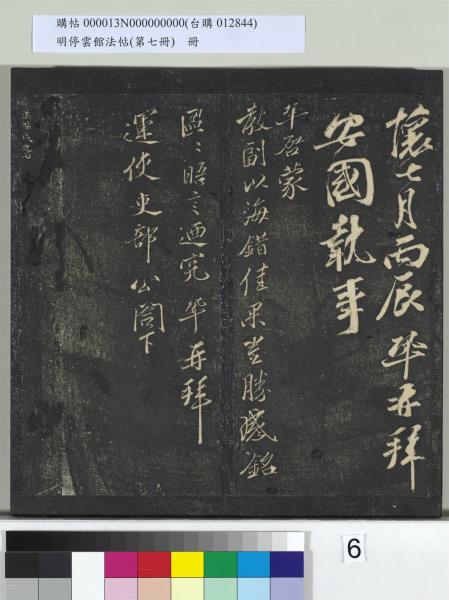 購帖 000013N000000000(台購 012844)
明停雲館法帖(第七冊) 冊
懷七月丙辰再拜
安國執事
啓蒙
教副以海錯佳果豈勝感銘
區〻晤言迺究再拜
運使吏部公閤下
6